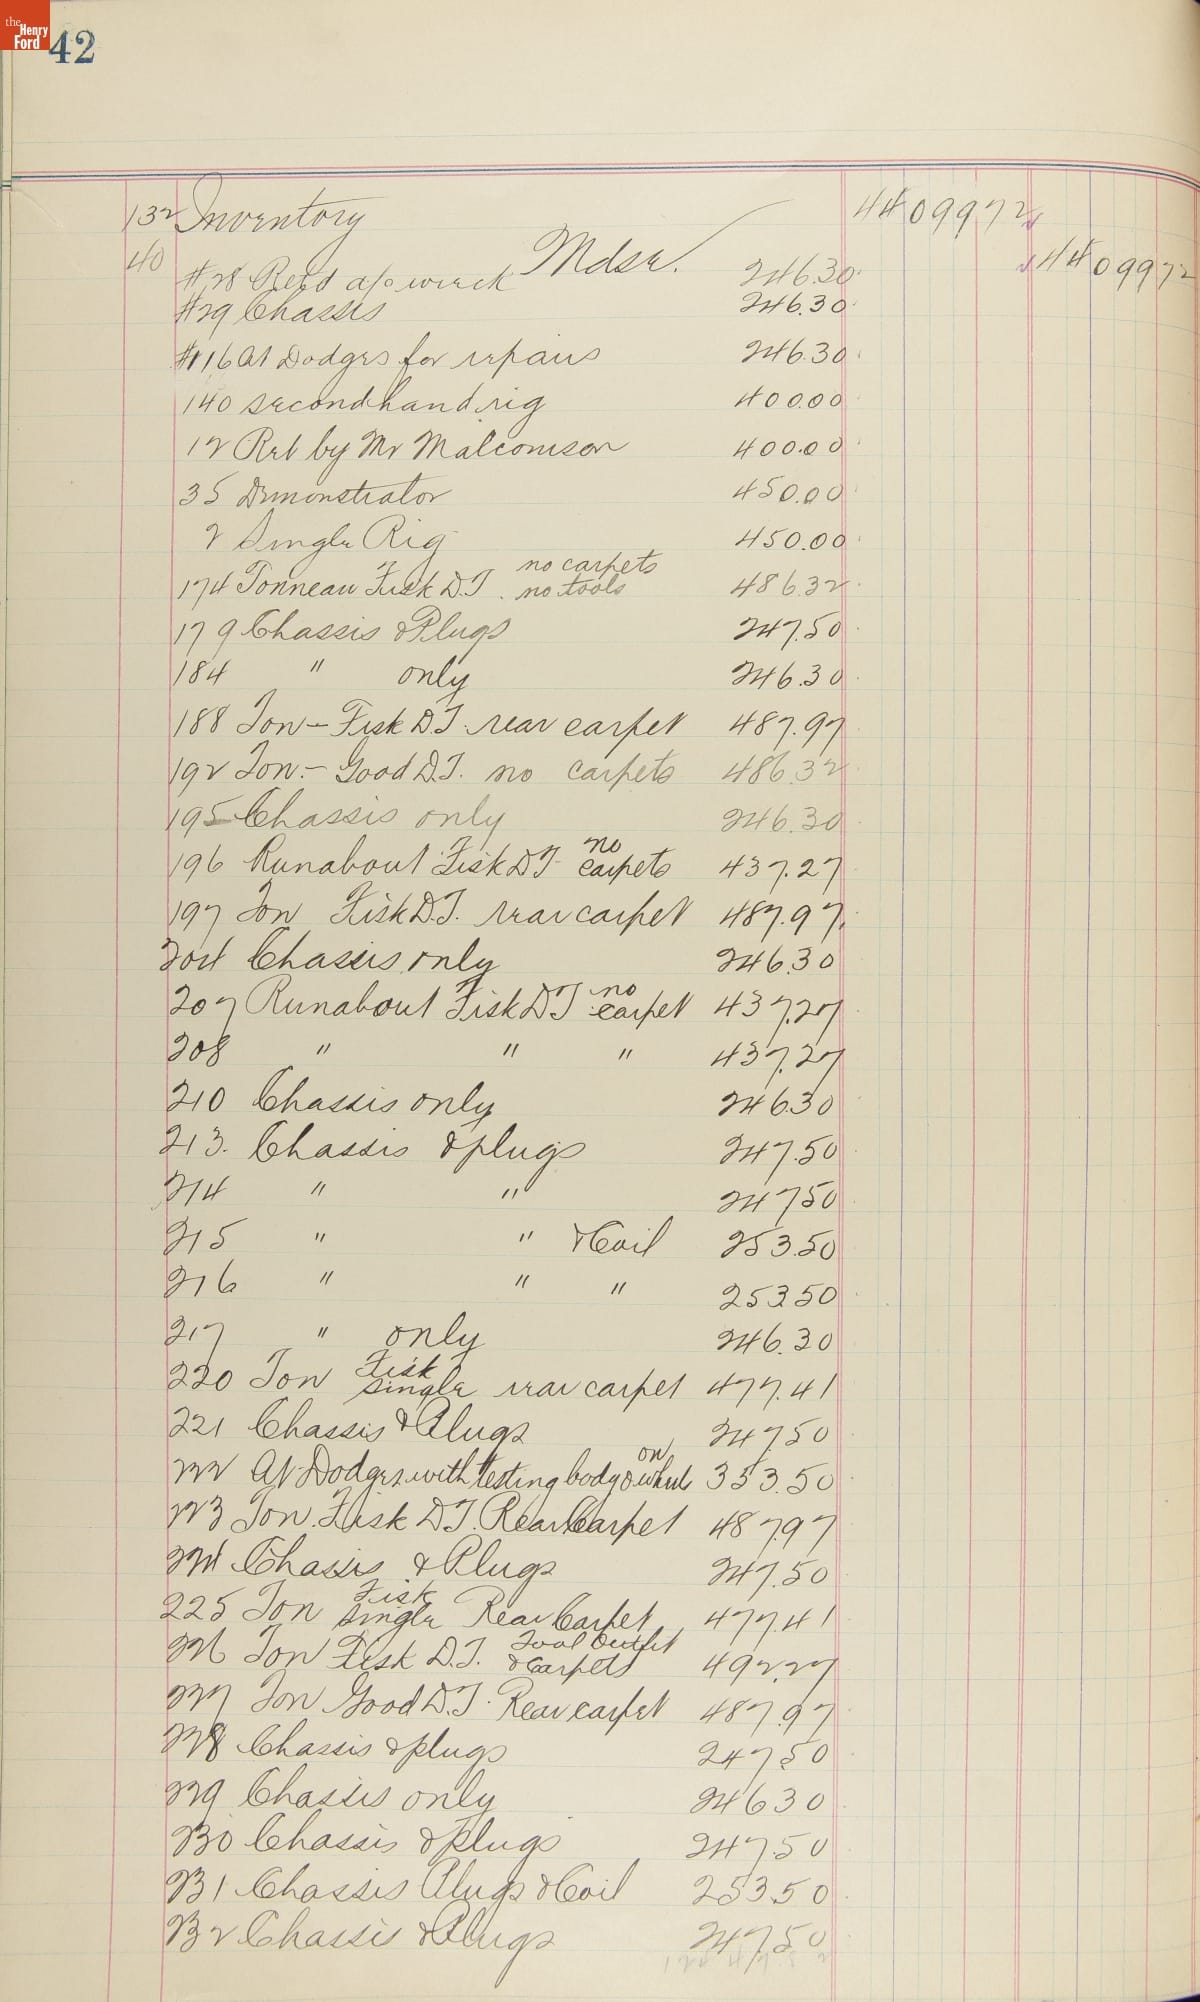 the Henry Ford
42
132 Inventory 4409972
40 Mdse. 4409972
#28 Retd a/c wreck 246.30
#29 Chassis 246.30
#116 At Dodges for repairs 246.30
140 secondhand rig 400.00
12 Ret by Mr Malcomson 400.00
35 Demonstrator 450.00
2 Single Rig 450.00
174 Tonneau Fisk D.T. no carpets no tools 486.32
179 Chassis & Plugs 247.50
184 " only 246.30
188 Ton - Fisk D.T. rear carpet 487.97
192 Ton. - Good D.T. no carpets 486.32
195 Chassis only 246.30
196 Runabout Fisk DT no carpets 437.27
197 Ton Fisk D.T. rear carpet 487.97
204 Chassis only 246.30
207 Runabout Fisk DT no carpet 437.27
208 " " " 437.27
210 Chassis only 246.30
213. Chassis & plugs 247.50
214 " " 247 50
215 " " & Coil 253.50
216 " " " 253 50
217 " only 246.30
220 Ton Fisk single rear carpet 477.41
221 Chassis & Plugs 247 50
222 At Dodges with testing body & on wheels 353.50
223 Ton. Fisk D.T. Rear Carpet 487.97
224 Chassis & Plugs 247.50
225 Ton Fisk single Rear Carpet 477.41
226 Ton Fisk D.T. Tool Outfit & Carpets 492.27
227 Ton Good D.T. Rear carpet 487.97
228 Chassis & plugs 247 50
229 Chassis only 246 30
230 Chassis & Plugs 247.50
231 Chassis Plugs & Coil 253.50
232 Chassis & Plugs 247.50